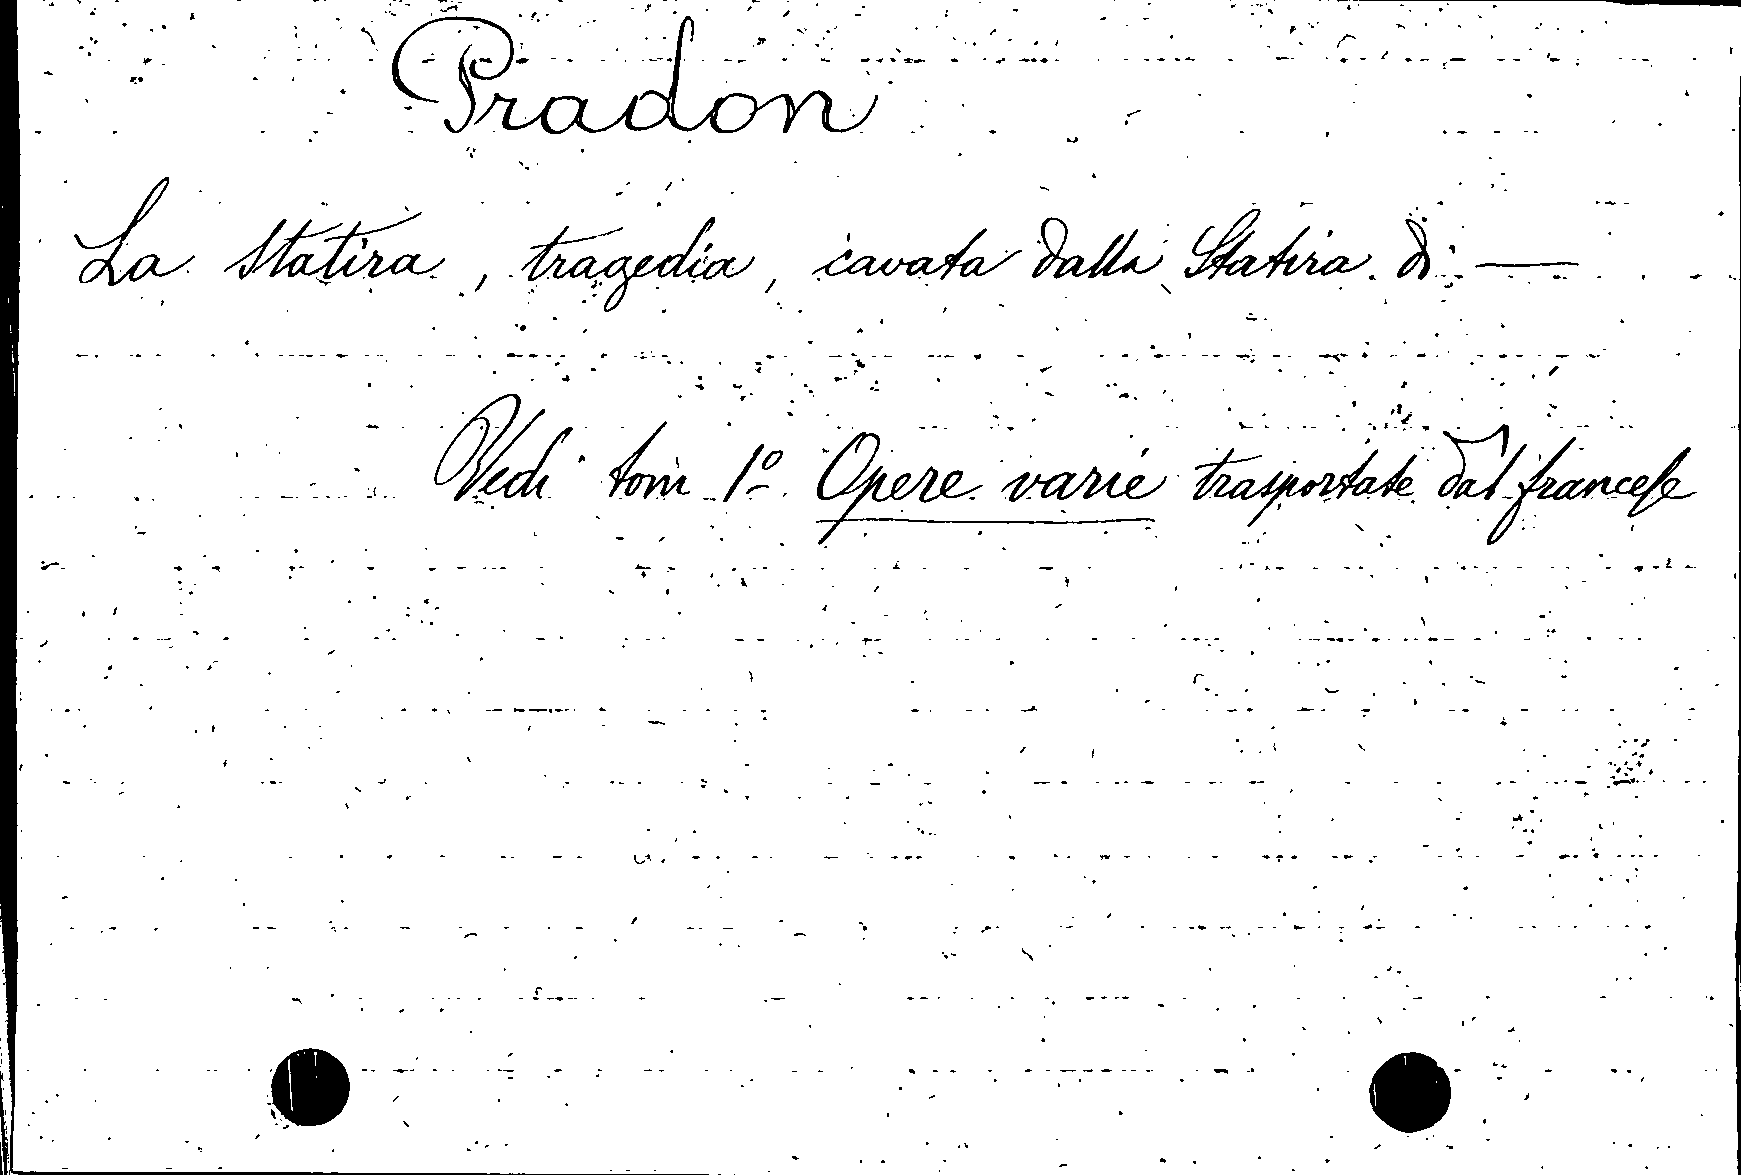 Pradon
La Statira, tragedia, cavata dalla Statira di —
Vedi tom 1º Opere varie trasportate dal francese